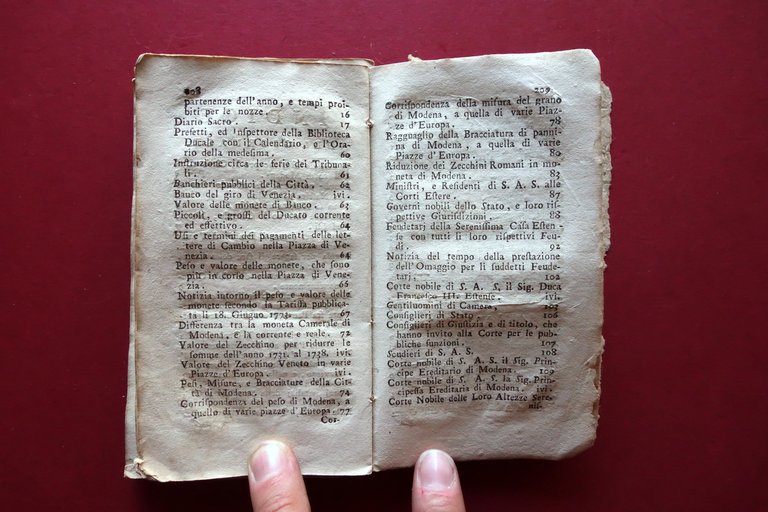 208
partenenze dell'anno, e tempi proi-
biti per le nozze. 16
Diario Sacro. 17
Prefetti, ed Inspettore della Biblioteca
Ducale con il Calendario, e l'Ora-
rio della medesima. 60
Instruzione circa le ferie dei Tribuna-
li. 61
Banchieri pubblici della Città. 62
Banco del giro di Venezia. ivi.
Valore delle monete di Banco. 63
Piccoli, e grossi del Ducato corrente
ed effettivo. 64
Usi e termini dei pagamenti delle let-
tere di Cambio nella Piazza di Ve-
nezia. 64
Peso e valore delle monete, che sono
più in corso nella Piazza di Vene-
zia. 66
Notizia intorno il peso e valore delle
monete secondo la Tariffa pubblica-
ta li 18. Giugno 1773. 67
Differenza tra la moneta Camerale di
Modena, e la corrente e reale. 72
Valore del Zecchino per ridurre le
somme dell'anno 1731. al 1738. ivi.
Valore del Zecchino Veneto in varie
Piazze d'Europa. ivi.
Pesi, Misure, e Bracciature della Cit-
tà di Modena. 74
Corrispondenza del peso di Modena, a
quello di varie piazze d'Europa. 77
Cor-
209
Corrispondenza della misura del grano
di Modena, a quella di varie Piaz-
ze d'Europa. 78
Ragguaglio della Bracciatura di panni-
na di Modena, a quella di varie
Piazze d'Europa. 80
Riduzione dei Zecchini Romani in mo-
neta di Modena. 83
Ministri, e Residenti di S. A. S. alle
Corti Estere. 87
Governi nobili dello Stato, e loro ris-
pettive Giurisdizioni. 88
Feudatarj della Serenissima Casa Esten-
se con tutti li loro rispettivi Feu-
di. 92
Notizia del tempo della prestazione
dell'Omaggio per li suddetti Feude-
tari. 102
Corte nobile di S. A. S. il Sig. Duca
Francesco III. Estense. ivi.
Gentiluomini di Camera. 105
Consiglieri di Stato. 106
Consiglieri di Giustizia e di titolo, che
hanno invito alla Corte per le pub-
bliche funzioni. 107
Scudieri di S. A. S. 108
Corte nobile di S. A. S. il Sig. Prin-
cipe Ereditario di Modena. 109
Corte nobile di S. A. S. la Sig. Prin-
cipessa Ereditaria di Modena. ivi.
Corte Nobile delle Loro Altezze Sere-
nis-